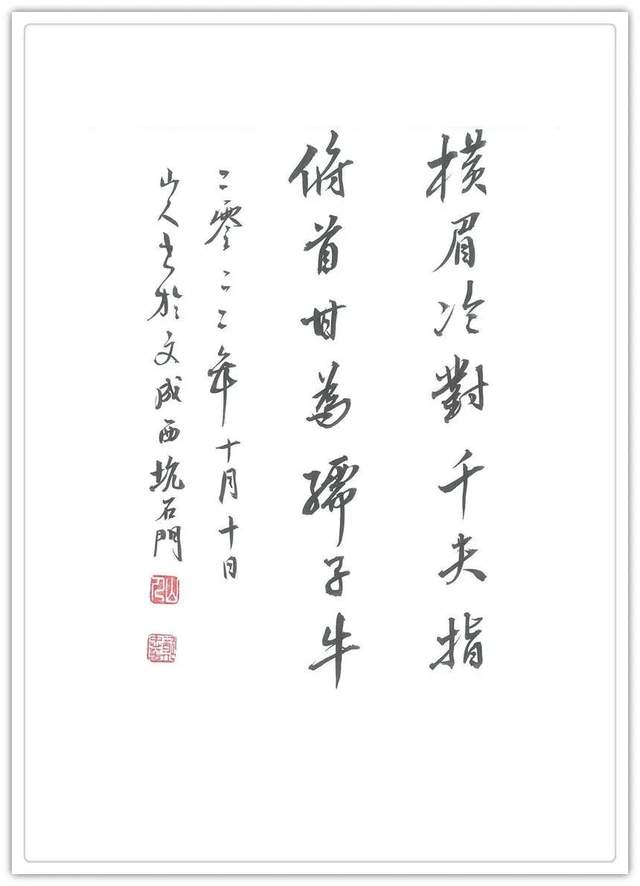 横眉冷對千夫指
俯首甘為孺子牛
二零二二年十月十日
山人书於文成西坑石門
山人